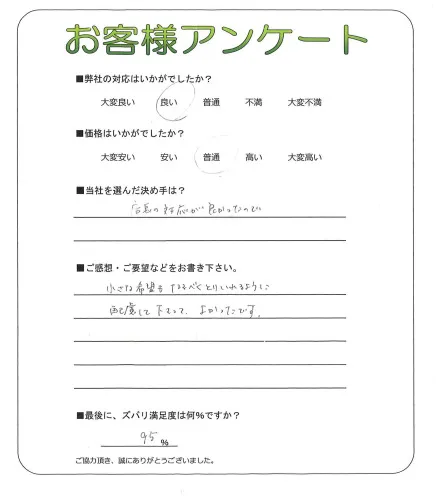 お客様アンケート
■弊社の対応はいかがでしたか？
大変良い 良い 普通 不満 大変不満
■価格はいかがでしたか？
大変安い 安い 普通 高い 大変高い
■当社を選んだ決め手は？
店長の対応が良かったので
■ご感想・ご要望などをお書き下さい。
小さな希望もなるべくとりいれるように
配慮して下さって、よかったです。
■最後に、ズバリ満足度は何%ですか？
95 %
ご協力頂き、誠にありがとうございました。